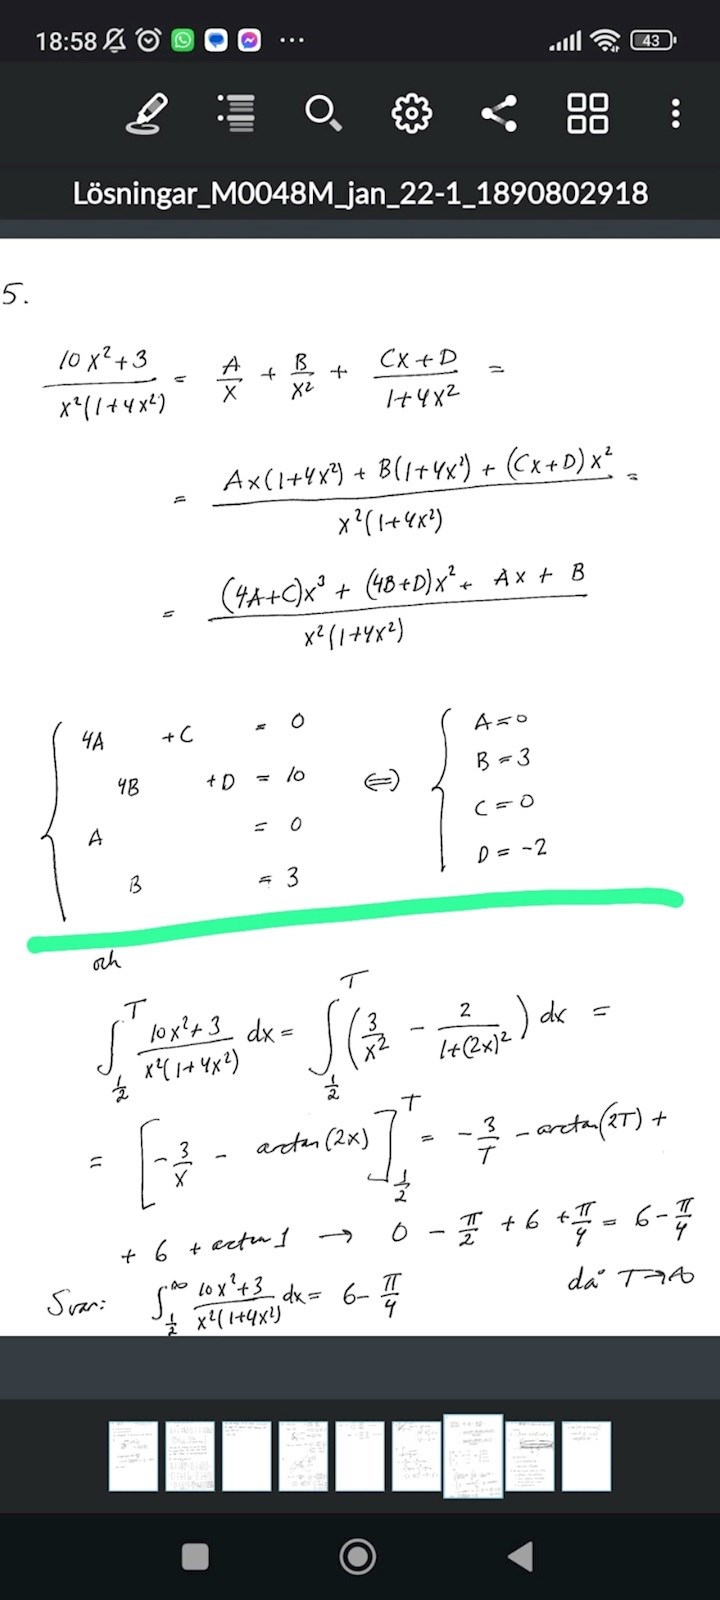 18:58 ... 43
Lösningar_M0048M_jan_22-1_1890802918
5.
(10x²+3)/(x²(1+4x²)) = A/x + B/x² + (Cx+D)/(1+4x²) =
= (Ax(1+4x²) + B(1+4x²) + (Cx+D)x²)/(x²(1+4x²)) =
= ((4A+C)x³ + (4B+D)x² + Ax + B)/(x²(1+4x²))
{ 4A +C = 0
4B +D = 10
A = 0
B = 3
⇔
{ A=0
B=3
C=0
D=-2
och
∫_{1/2}^{T} (10x²+3)/(x²(1+4x²)) dx = ∫_{1/2}^{T} (3/x² - 2/(1+(2x)²)) dx =
= [-3/x - arctan(2x)]_{1/2}^{T} = -3/T - arctan(2T) +
+ 6 + arctan 1 → 0 - π/2 + 6 + π/4 = 6 - π/4
då T→∞
Svar: ∫_{1/2}^{∞} (10x²+3)/(x²(1+4x²)) dx = 6 - π/4